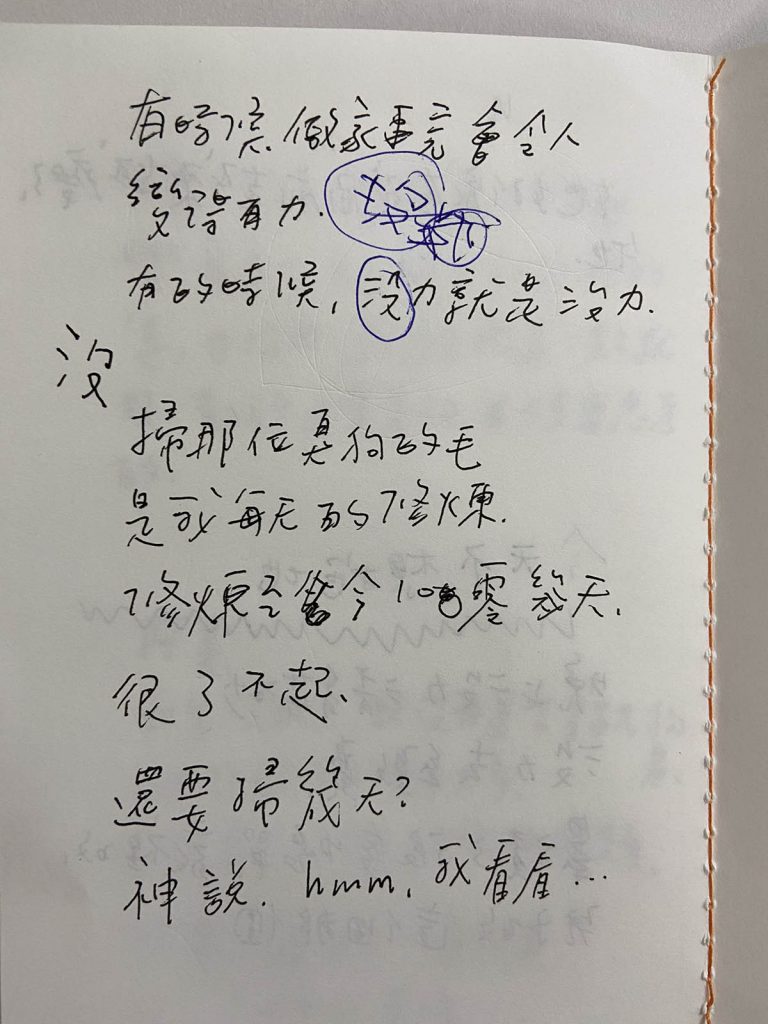 有時候做家事完會令人
變得有力.
有的時候,沒力就是沒力.
沒
掃那位臭狗的毛
是我每天的修煉.
修煉至今 零幾天.
很了不起.
還要掃幾天?
神說. hmm, 我看看...